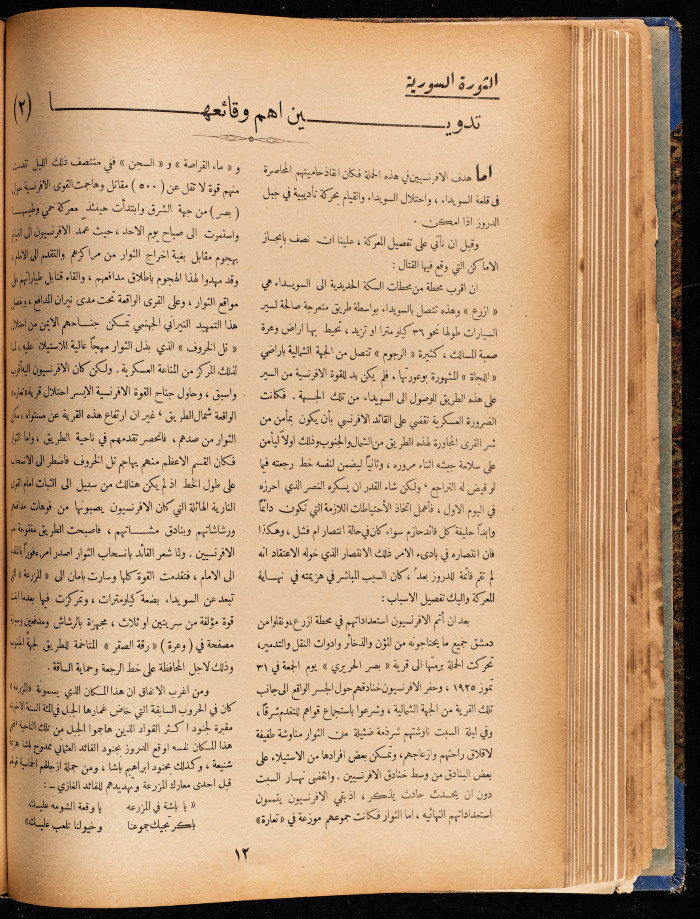 الثورة السورية
تدويـــــن اهم وقائعهـــــا (٢)
اما هدف الافرنسيين في هذه الحملة فكان انقاذ حاميتهم المحاصرة
في قلعة السويداء ، واحتلال السويداء والقيام بحركة تأديبية في جبل
الدروز اذا امكن .
وقبل ان نأتي على تفصيل المعركة ، علينا ان نصف بايجاز
الاماكن التي وقع فيها القتال :
ان اقرب محطة من محطات السكة الحديدية الى السويداء هي
« ازرع » وهذه تتصل بالسويداء بواسطة طريق متعرجة صالحة لسير
السيارات طولها نحو ٣٦ كيلومترا او تزيد ، تحيط بها اراض وعرة
صعبة المسالك ، كثيرة « الرجوم » تتصل من الجهة الشمالية باراضي
« اللجاة » المشهورة بوعورتها . فلم يكن بد للقوة الافرنسية من السير
على هذه الطريق للوصول الى السويداء من تلك الجهة . فكانت
الضرورة العسكرية تقضي على القائد الافرنسي بأن يكون بمأمن من
شر القرى المجاورة لهذه الطريق من الشمال والجنوب وذلك اولاً ليأمن
على سلامة جيشه اثناء مروره ، وثانياً ليضمن لنفسه خط رجعته فيما
لو قيض له التراجع ، ولكن شاء القدر ان يسكره النصر الذي احرزه
في اليوم الاول ، فأهمل اتخاذ الأحتياطات اللازمة التي تكون دائماً
وابداً حليفة كل قائد حازم سواء كان في حالة انتصار ام فشل ، وهكذا
فان انتصاره في بادىء الامر ذلك الانتصار الذي خوله الاعتقاد انه
لم تقم قائمة للدروز بعد ، كان السبب المباشر في هزيمته في نهاية
المعركة واليك تفصيل الاسباب :
بعد ان أتم الافرنسيون استعداداتهم في محطة ازرع ، ونقلوا من
دمشق جميع ما يحتاجونه من المؤن والذخائر وادوات النقل والتدمير ،
تحركت الحملة برمتها الى قرية « بصر الحريري » يوم الجمعة في ٣١
تموز ١٩٢٥ ، وحفر الافرنسيون خنادقهم حول الجسر الواقع الى جانب
تلك القرية من الجهة الشمالية ، وشرعوا باستجماع قواهم للتقدم شرقا ،
وفي ليلة السبت ناوشتهم شرذمة ضئيلة من الثوار مناوشة طفيفة
لاقلاق راحتهم وازعاجهم ، وتمكن بعض افرادها من الاستيلاء على
بعض البنادق من وسط خنادق الافرنسيين . وانقضى نهار السبت
دون ان يحدث حادث يذكر ، اذ بقي الافرنسيون يتممون
استعداداتهم النهائيه ، اما الثوار فكانت جموعهم موزعة في « تعارة »
و « ماء القراصة » و « السجن » ففي منتصف ذلك الليل تقدمت
منهم قوة لا تقل عن ( ٥٠٠ ) مقاتل وهاجمت القوى الافرنسية حول
( بصر ) من جهة الشرق وابتدأت حينئذ معركة حمي وطيسها
واستمرت الى صباح يوم الاحد ، حيث عمد الافرنسيون الى القيام
بهجوم مقابل بغية اخراج الثوار من مراكزهم والتقدم الى الامام ،
وقد مهدوا لهذا الهجوم باطلاق مدافعهم ، والقاء قنابل طياراتهم على
مواقع الثوار ، وعلى القرى الواقعة تحت مدى نيران المدافع ، وبفضل
هذا التمهيد النيراني الجهنمي تمكن جناحهم الايمن من احتلال
« تل الخروف » الذي بذل الثوار مهجاً غالية للاستيلاء عليه ، لما
لذلك المركز من المناعة العسكرية . ولكن كان الافرنسيون اليه أقرب
واسبق ، وحاول جناح القوة الافرنسية الايسر احتلال قرية « تعارة »
الواقعة شمال الطريق ، غير ان ارتفاع هذه القرية عن مستواه ، مكن
الثوار من صدهم ، فانحصر تقدمهم في ناحية الطريق ، واما الثوار
فكان القسم الاعظم منهم يهاجم تل الخروف فاضطر الى الانسحاب
على طول الخط اذ لم يكن هنالك من سبيل الى الثبات امام القوة
النارية الهائلة التي كان الافرنسيون يصبونها من فوهات مدافعهم
ورشاشاتهم وبنادق مشاتهم ، فاصبحت الطريق مفتوحة امام
الافرنسيين . ولما شعر القائد بانسحاب الثوار اصدر امره فوراً بالتقدم
الى الامام ، فتقدمت القوة كلها وسارت بامان الى « المزرعة » التي
تبعد عن السويداء بضعة كيلومترات ، وتمركزت فيها بعدما ابقت
قوة مؤلفة من سريتين او ثلاث ، مجهزة بالرشاش ومدفعين وسيارة
مصفحة في ( وعرة ) « رقة الصقر » المتاخمة للطريق لجهة الجنوب
وذلك لاجل المحافظة على خط الرجعة وحماية الساقة .
ومن اغرب الاتفاق ان هذا المكان الذي يسمونه « المزرعة »
كان في الحروب السابقة التي خاض غمارها الجبل في المئة السنة الاخيرة
مقبرة لجنود اكثر القواد الذين هاجموا الجبل من تلك الناحية ، ففي
هذا المكان نفسه اوقع الدروز بجنود القائد العثماني ممدوح باشا هزيمة
شنيعة ، وكذلك بجنود ابراهيم باشا ، ومن جملة ازجالهم الحماسية قولهم
قبل احدى معارك المزرعة وتهديدهم للقائد الغازي ـ :
« يا باشة في المزرعه يا وقعة الشومه عليك
باكر نجيك جموعنا وخيولنا تلعب عليك »
١٢